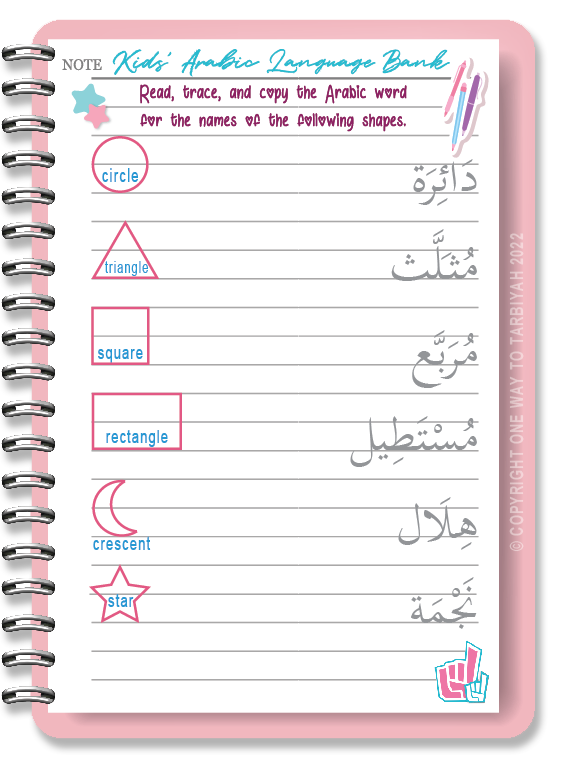 NOTE Kids' Arabic Language Bank
Read, trace, and copy the Arabic word
for the names of the following shapes.
circle دَائِرَة
triangle مُثَلَّث
square مُرَبَّع
rectangle مُسْتَطِيل
crescent هِلَال
star نَجْمَة
© COPYRIGHT ONE WAY TO TARBIYAH 2022